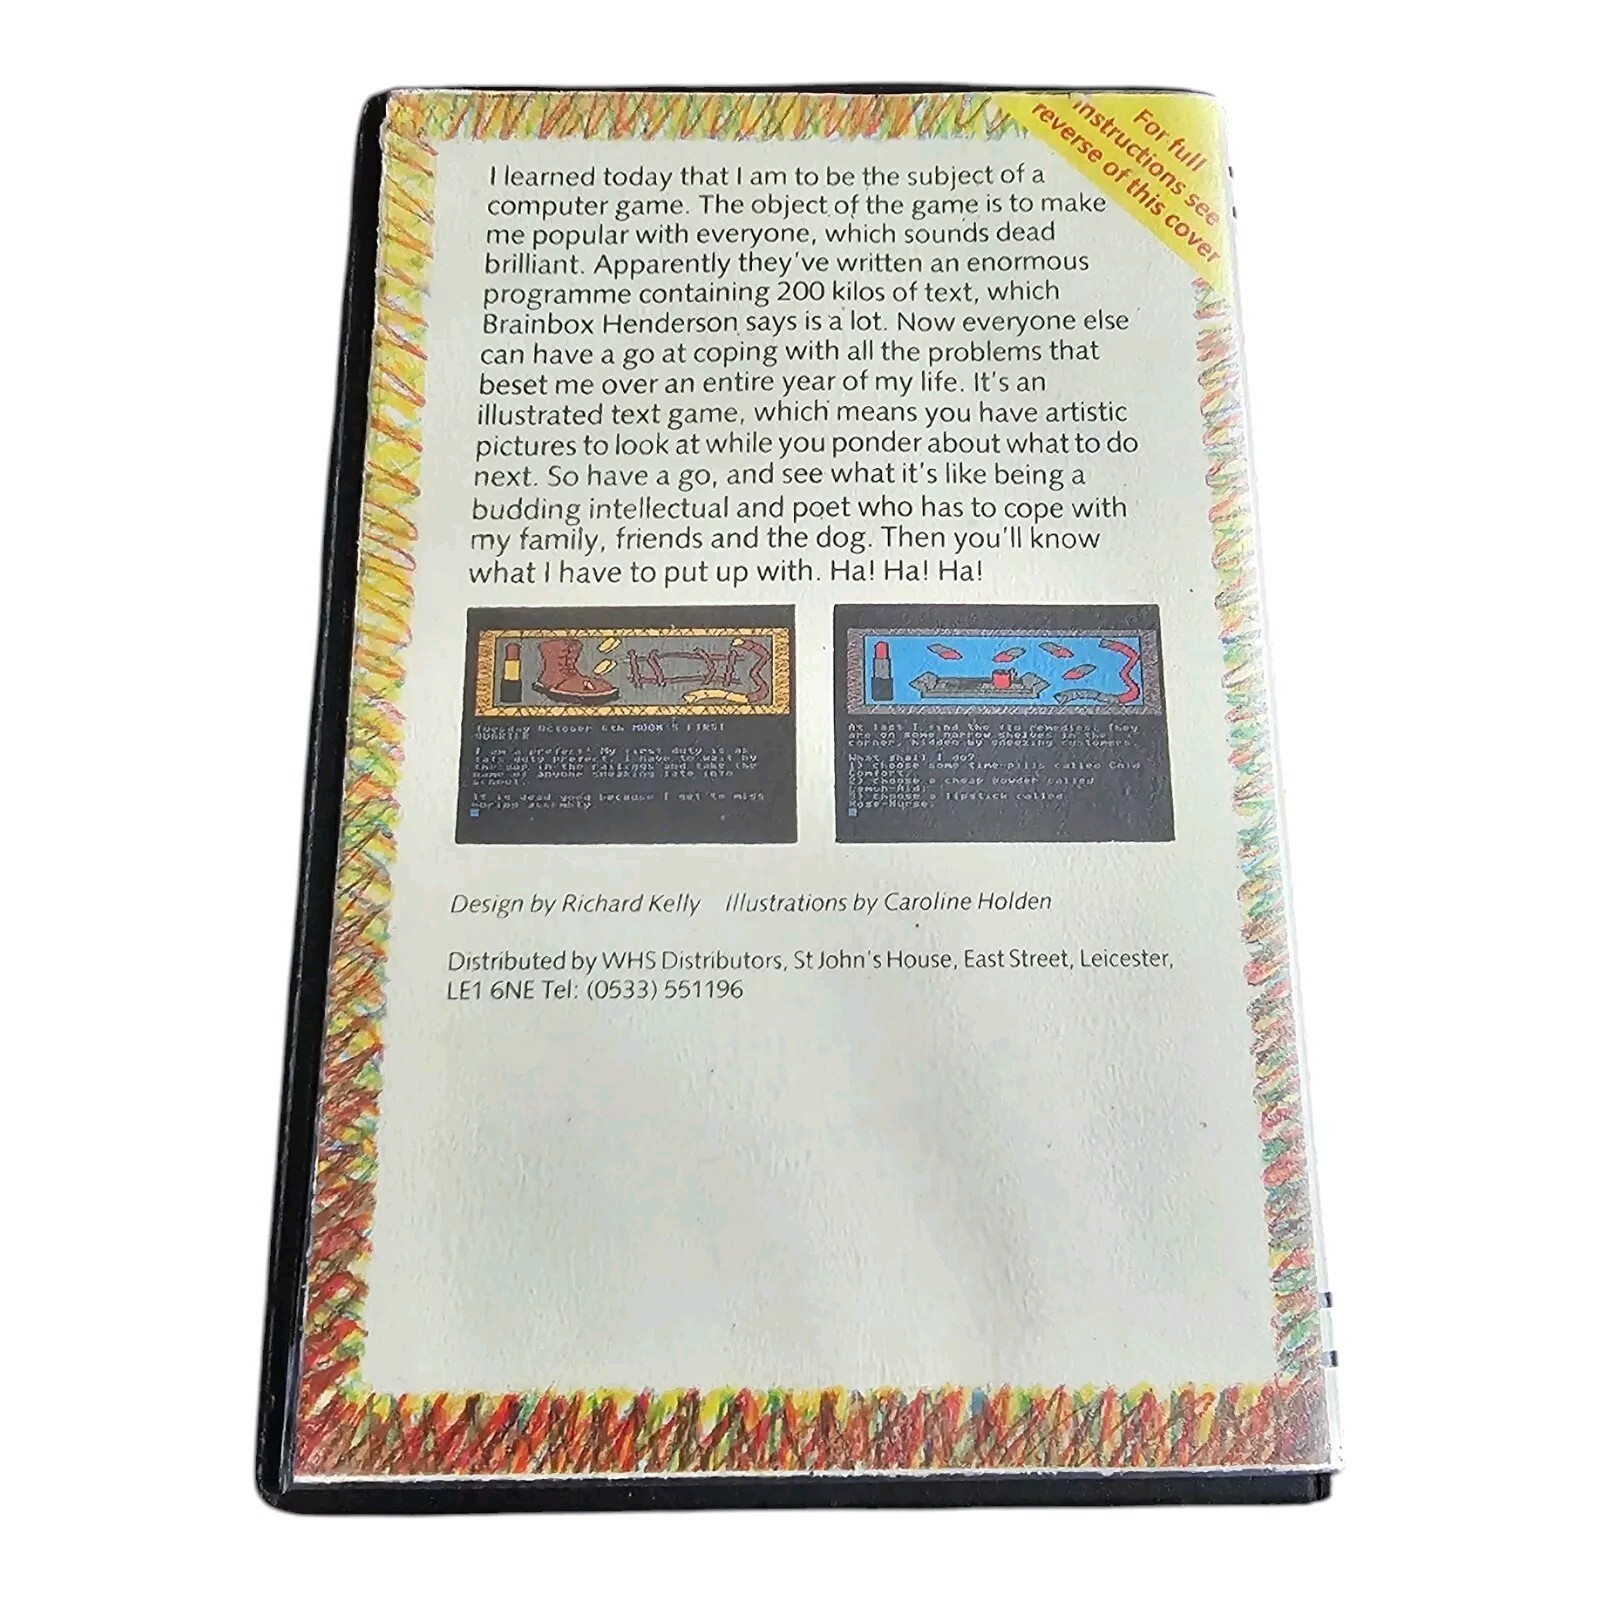 For full
instructions see
reverse of this cover
I learned today that I am to be the subject of a
computer game. The object of the game is to make
me popular with everyone, which sounds dead
brilliant. Apparently they've written an enormous
programme containing 200 kilos of text, which
Brainbox Henderson says is a lot. Now everyone else
can have a go at coping with all the problems that
beset me over an entire year of my life. It's an
illustrated text game, which means you have artistic
pictures to look at while you ponder about what to do
next. So have a go, and see what it's like being a
budding intellectual and poet who has to cope with
my family, friends and the dog. Then you'll know
what I have to put up with. Ha! Ha! Ha!
Tuesday October 6th MOON'S FIRST
QUARTER
I am a prefect! My first duty is as
late duty prefect. I have to wait by
the gap in the railings and take the
name of anyone sneaking late into
school.
It is dead good because I get to miss
boring assembly.
At last I find the old remedies. They
are on some narrow shelves in the
corner, hidden by sneezing customers.
What shall I do?
1) choose some time-pills called Cold
Comfort;
2) choose a cheap powder called
Lemon-Aid;
3) choose a lipstick called
Rose-Nurse.
Design by Richard Kelly Illustrations by Caroline Holden
Distributed by WHS Distributors, St John's House, East Street, Leicester,
LE1 6NE Tel: (0533) 551196